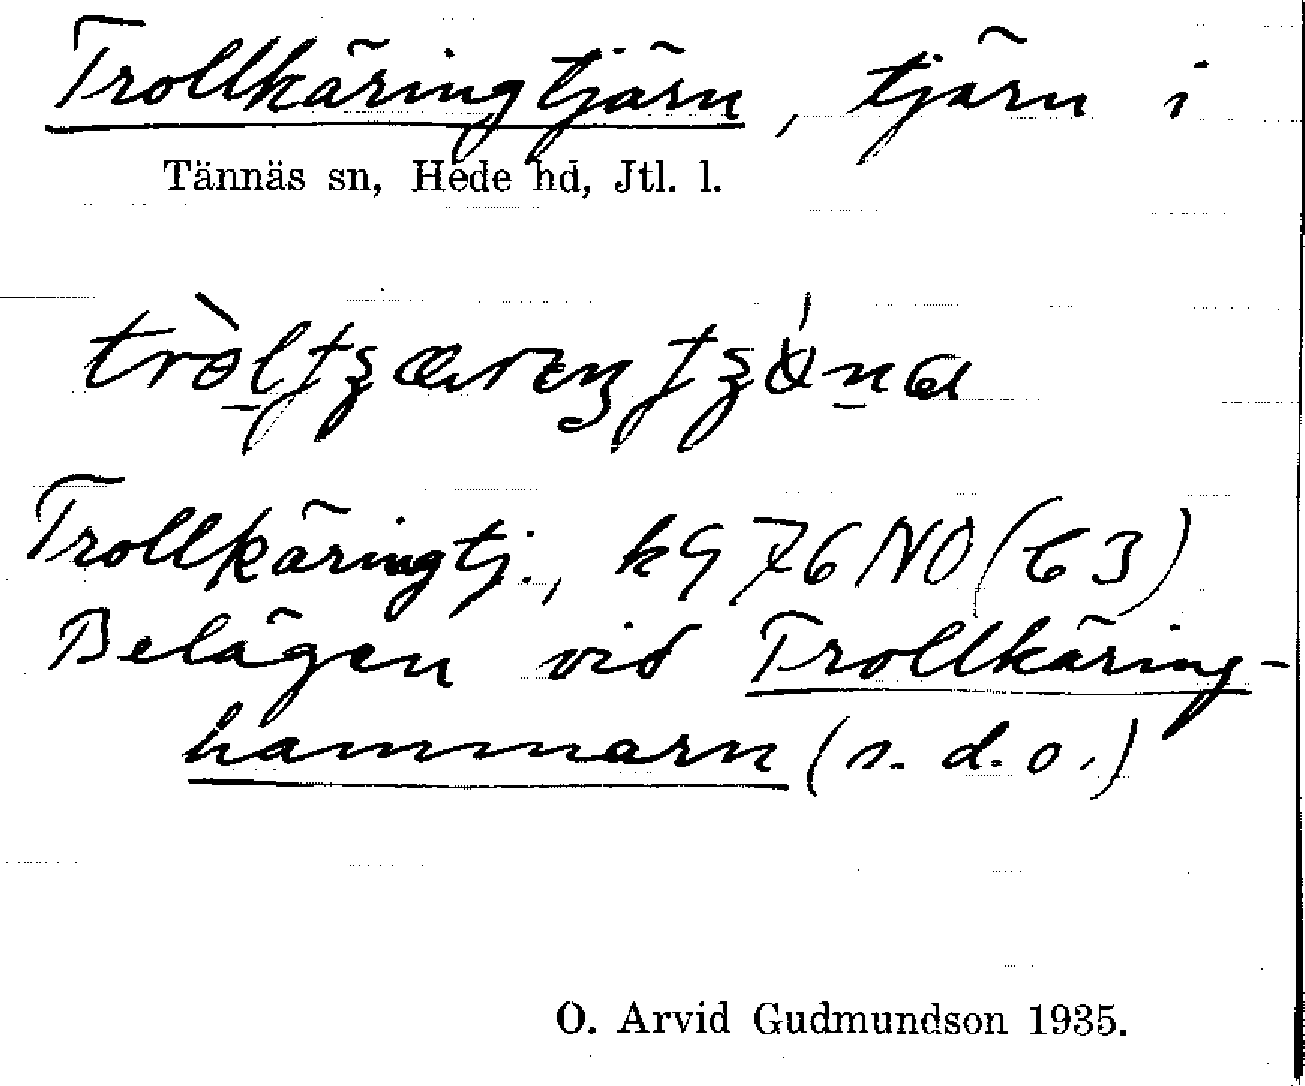 Trollkäringtjärn, tjärn i
Tännäs sn, Hede hd, Jtl. l.
Trollkäringtj., kg 76 NO (C 3)
Belägen vid Trollkäring-
hammarn (s. d. o.)
O. Arvid Gudmundson 1935.